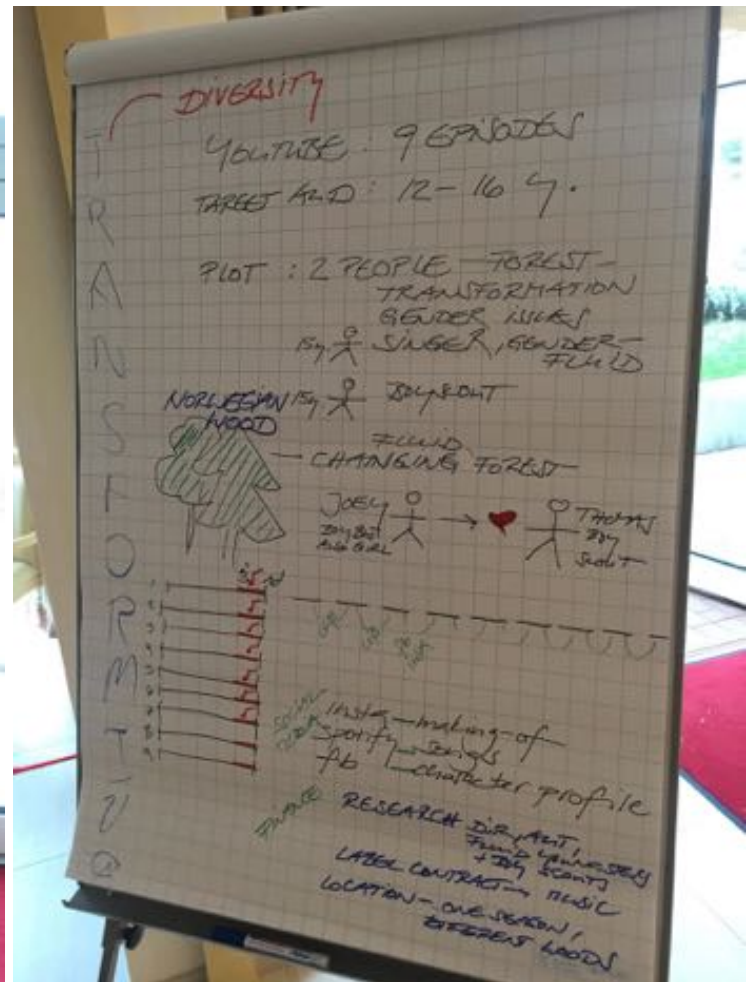 DIVERSITY
YOUTUBE : 9 EPISODES
TARGET AUD : 12-16 y.
PLOT : 2 PEOPLE FOREST-
TRANSFORMATION
GENDER ISSUES
15y SINGER, GENDER-
FLUID
15y BOYSCOUT
NORWEGIAN
WOOD
FLUID
CHANGING FOREST
JOEY
ALSO GIRL
THOMAS
BOY
SCOUT
1
2
3
4
5
6
7
8
9
SOCIAL
Insta - making-of
Spotify - songs
fb - character profile
FINANCE
RESEARCH
FLUID YOUNGSTERS
+ BOY SCOUTS
LABEL CONTRACT - MUSIC
LOCATION - ONE SEASON,
DIFFERENT WOODS
T
R
A
N
S
F
O
R
M
T